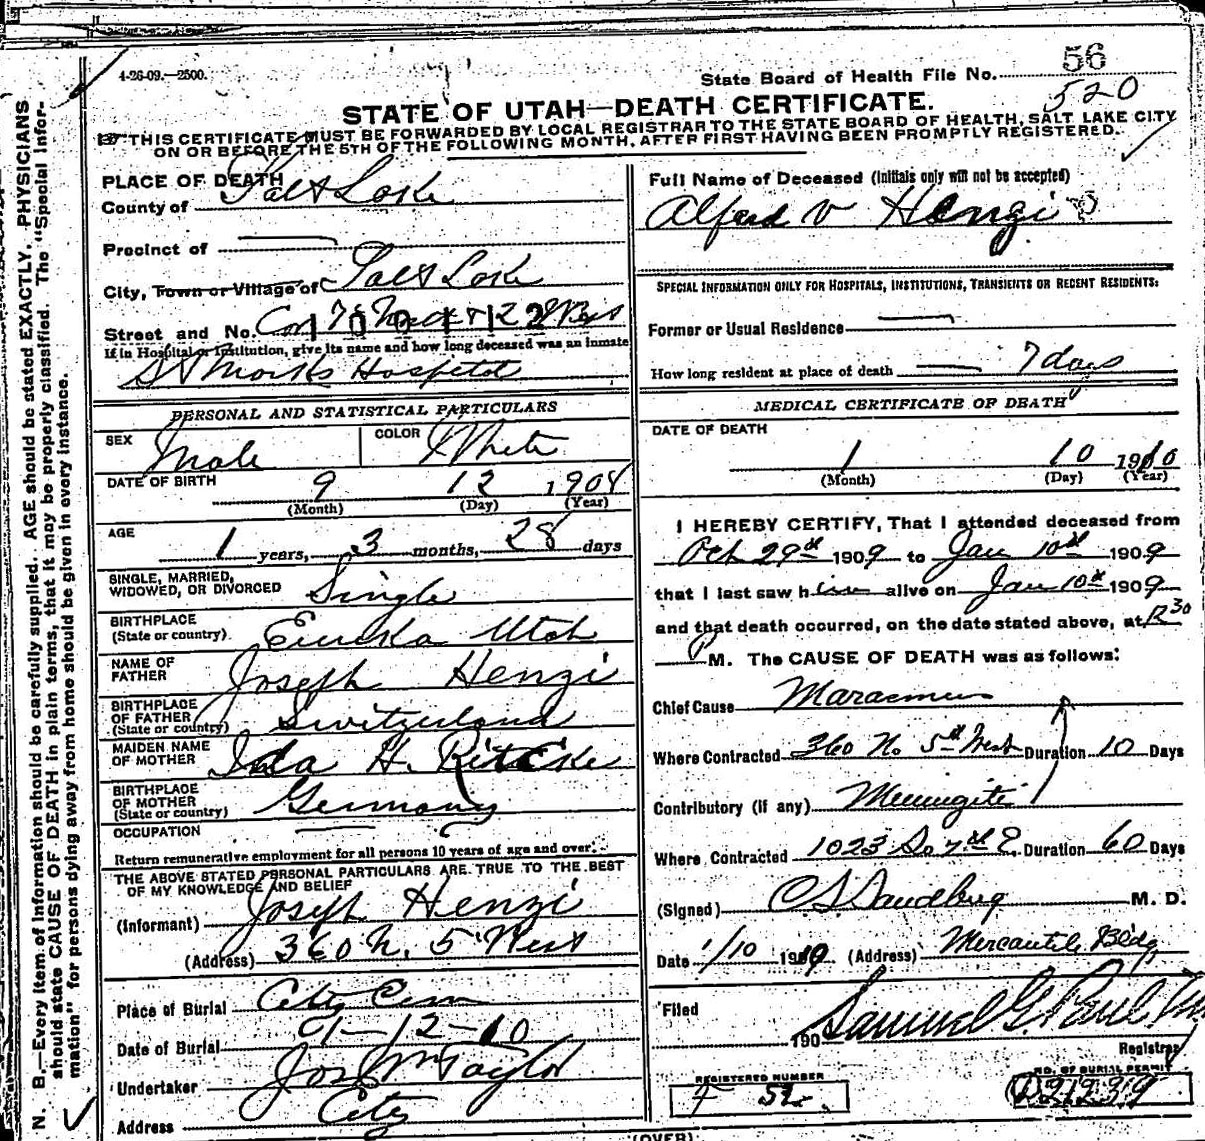 4-26-09.—2500.
State Board of Health File No. 56
520
STATE OF UTAH—DEATH CERTIFICATE.
THIS CERTIFICATE MUST BE FORWARDED BY LOCAL REGISTRAR TO THE STATE BOARD OF HEALTH, SALT LAKE CITY
ON OR BEFORE THE 5TH OF THE FOLLOWING MONTH, AFTER FIRST HAVING BEEN PROMPTLY REGISTERED.
PLACE OF DEATH
County of Salt Lake
Precinct of
City, Town or Village of Salt Lake
Street and No. Cor 7
If in Hospital or Institution, give its name and how long deceased was an inmate
St Marks Hospital
PERSONAL AND STATISTICAL PARTICULARS
SEX Male COLOR White
DATE OF BIRTH 9 12 1908
(Month) (Day) (Year)
AGE 1 years, 3 months, 28 days
SINGLE, MARRIED,
WIDOWED, OR DIVORCED Single
BIRTHPLACE
(State or country) Eureka Utah
NAME OF
FATHER Joseph Henzi
BIRTHPLACE
OF FATHER
(State or country) Switzerland
MAIDEN NAME
OF MOTHER Ida H.
BIRTHPLACE
OF MOTHER
(State or country) Germany
OCCUPATION
Return remunerative employment for all persons 10 years of age and over.
THE ABOVE STATED PERSONAL PARTICULARS ARE TRUE TO THE BEST
OF MY KNOWLEDGE AND BELIEF
(Informant) Joseph Henzi
(Address) 360 N. 5 West
Place of Burial City Cem
Date of Burial 1-12-10
Undertaker Jos Wm Taylor
Address City
Full Name of Deceased (Initials only will not be accepted)
Alfred V Henzi
SPECIAL INFORMATION ONLY FOR HOSPITALS, INSTITUTIONS, TRANSIENTS OR RECENT RESIDENTS:
Former or Usual Residence
How long resident at place of death 7 days
MEDICAL CERTIFICATE OF DEATH
DATE OF DEATH
1 10 1910
(Month) (Day) (Year)
I HEREBY CERTIFY, That I attended deceased from
Oct 29th 1909 to Jan 10th 1909
that I last saw him alive on Jan 10th 1909
and that death occurred, on the date stated above, at 12 30
P M. The CAUSE OF DEATH was as follows:
Chief Cause Marasmus
Where Contracted 360 No 5th West Duration 10 Days
Contributory (if any) Meningitis
Where Contracted 1023 So 7th E. Duration 60 Days
(Signed) M. D.
Date 1/10 19 (Address) Mercantile Bldg
Filed
190 Samuel G. Paul
Registrar
REGISTERED NUMBER
F 52
NO. OF BURIAL PERMIT
D21239
(OVER)
N. B.—Every item of information should be carefully supplied. AGE should be stated EXACTLY. PHYSICIANS
should state CAUSE OF DEATH in plain terms, that it may be properly classified. The "Special Infor-
mation" for persons dying away from home should be given in every instance.